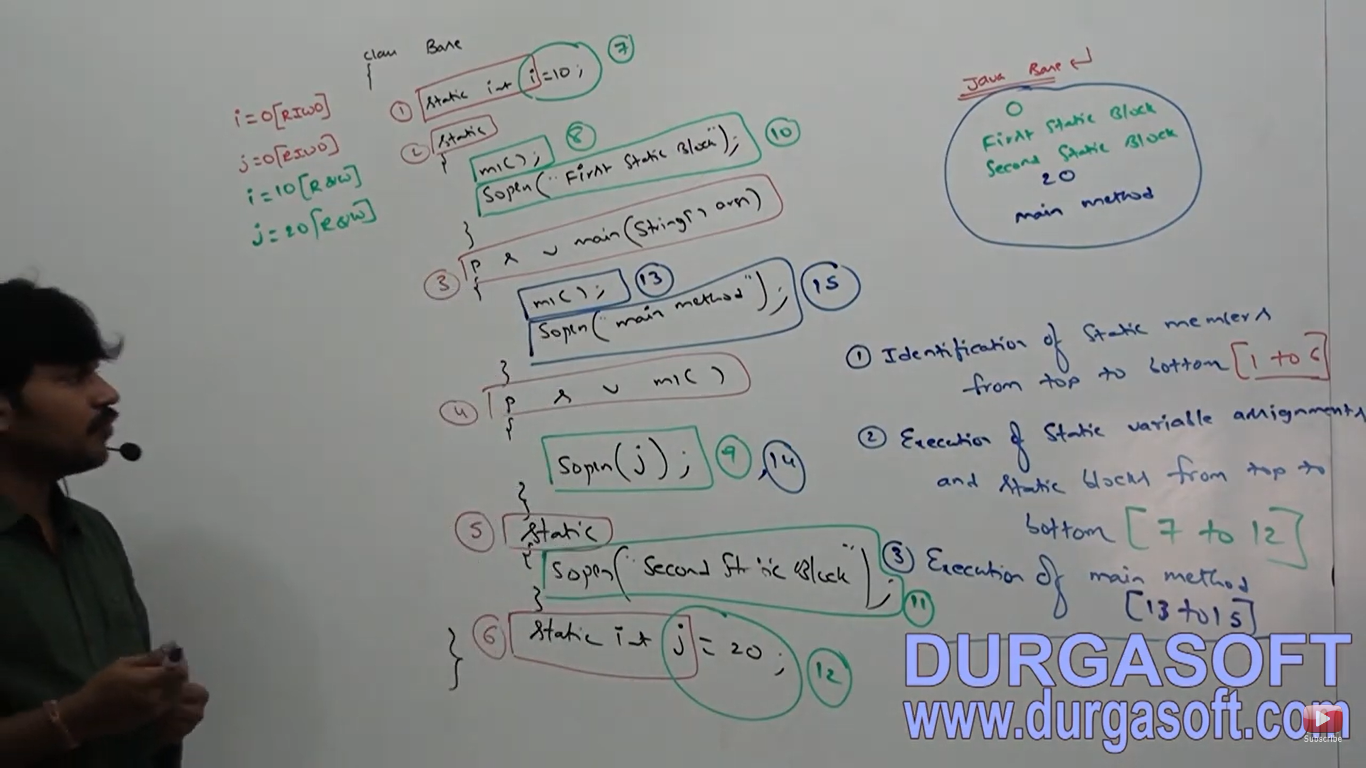 class Base
{
① static int i = 10; ⑦
② static
{
m1(); ⑧
Sopln("First Static Block"); ⑩
}
③ P s v main(String[] args)
{
m1(); ⑬
Sopln("main method"); ⑮
}
④ P s v m1()
{
Sopln(j); ⑨, ⑭
}
⑤ static
{
Sopln("Second Static Block"); ⑪
}
⑥ static int j = 20; ⑫
}
i=0[RIWO]
j=0[RIWO]
i=10[R&W]
j=20[R&W]
Java Base ↵
0
First Static Block
Second Static Block
20
main method
① Identification of static members
from top to bottom [1 to 6]
② Execution of static variable assignments
and static blocks from top to
bottom [7 to 12]
③ Execution of main method
[13 to 15]
DURGASOFT
www.durgasoft.com
Subscribe